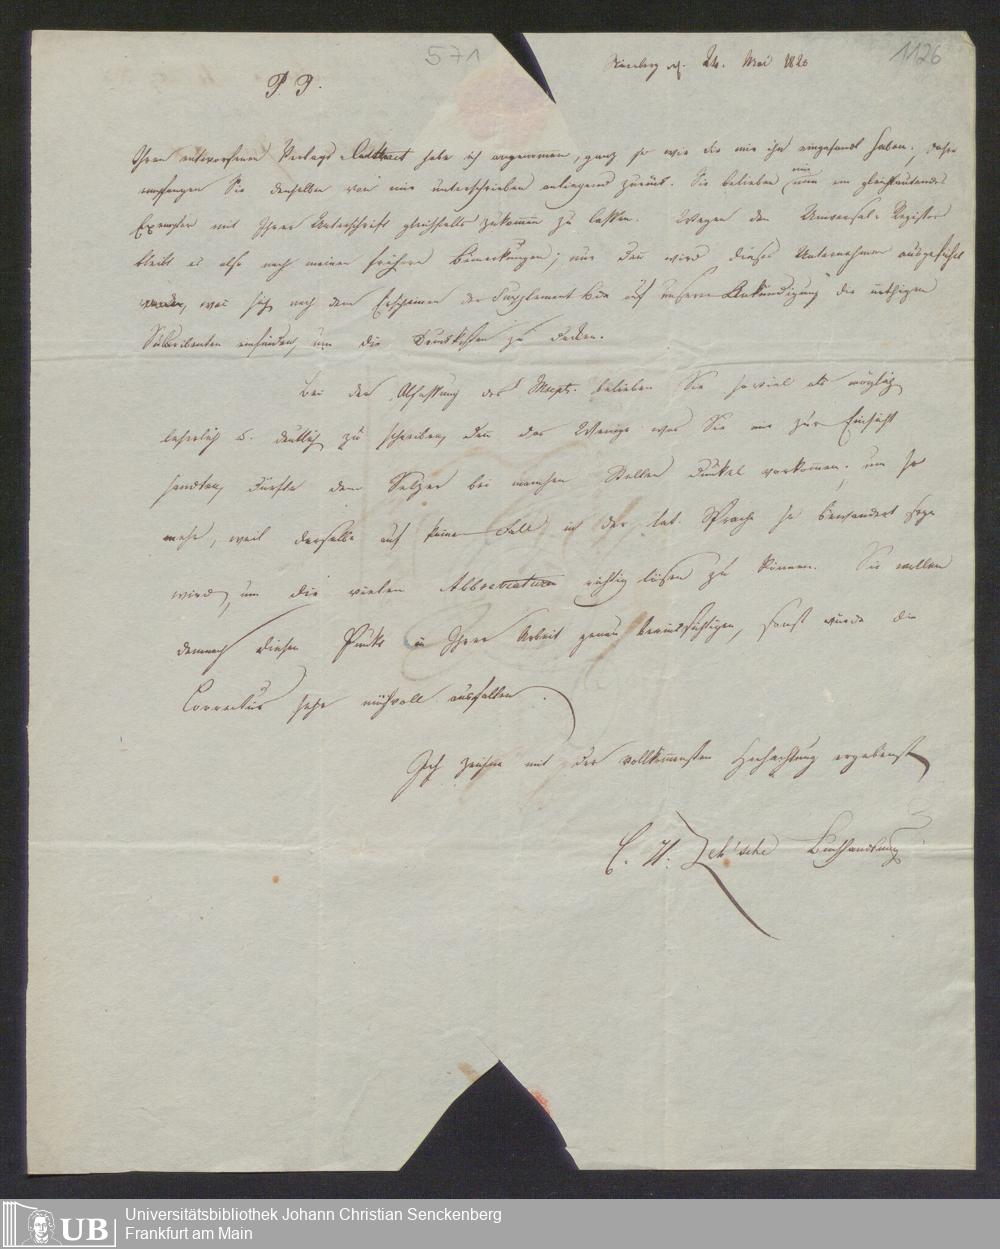 571
Nürnberg d. 24. Mai 1820
1126
P. P.
Ihren entworfenen Verlags Contract habe ich angenommen, ganz so wie Sie mir ihn eingesandt haben; daher
empfangen Sie denselben von mir unterschrieben anliegend zurück. Sie belieben mir nun ein gleichlautendes
Exemplar mit Ihrer Unterschrift gleichfalls zukommen zu lassen. Wegen den Universal-Register
bleibt es also nach meinen frühern Bemerkungen; nur dann wird dieses Unternehmen ausgeführt
werden, wenn sich nach dem Erscheinen der Supplement Bde auf unsere Ankündigung die nöthigen
Subscribenten einfinden, um die Druckkosten zu decken.
Bei der Abfassung des Mscpts. belieben Sie soviel als möglich
leserlich u. deutlich zu schreiben, denn das Wenige was Sie mir zur Einsicht
sandten, dürfte dem Setzer bei manchen Stellen dunkel vorkommen; um so
mehr, weil derselbe auf keinen Fall in der lat. Sprache so bewandert seyn
wird, um die vielen Abbreviaturen richtig lösen zu können. Sie wollen
demnach diesen Punkt in Ihrer Arbeit genau berücksichtigen, sonst würde die
Correctur sehr mühvoll ausfallen.
Ich zeichne mit der vollkommensten Hochachtung ergebenst
C. H. Zeh'sche Buchhandlung
UB
Universitätsbibliothek Johann Christian Senckenberg
Frankfurt am Main